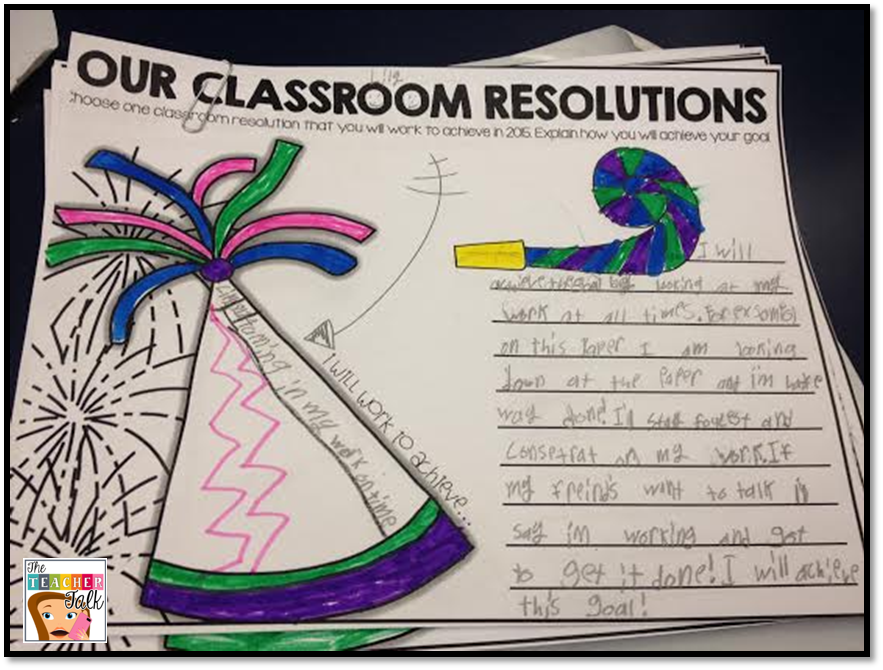 OUR CLASSROOM RESOLUTIONS
Choose one classroom resolution that you will work to achieve in 2015. Explain how you will achieve your goal
I will
looking at my
work at all times. For
on this Paper I am looking
down at the Paper and i'm
way done! I'll and
Consetrat on my work. If
my freinds want to talk
say im working and got
to get it done! I will achieve
this goal!
in my work on time
I WILL WORK TO achieve...
The
TEACHER
Talk